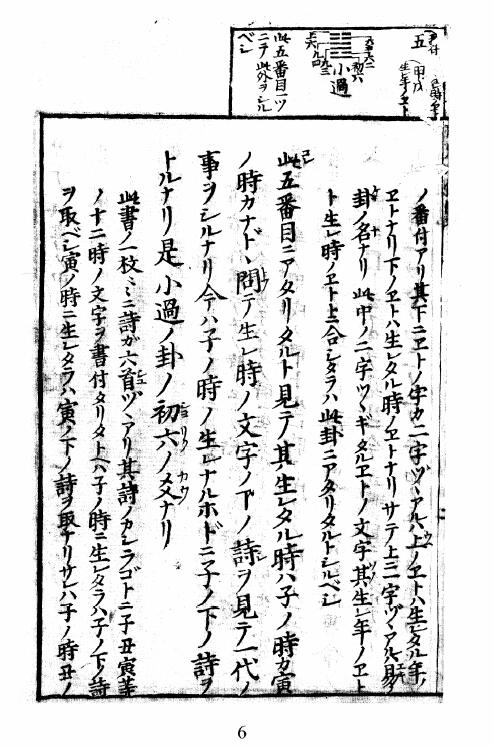 五
甲戊
小過
初六
此五番目一ツ
ニテ此外ヲシル
ベシ
ノ番付アリ其下ニヱトノ字カ二字ヅヽアルハ上ノヱトハ生レタル年ノ
ヱトナリ下ノヱトハ生レタル時ノヱトナリサテ上三字ヅヽアルハ易ノ
卦ノ名ナリ此中ノ二字ツヽギタルヱトノ文字其生レ年ノヱト
ト生レ時ノヱト上合シタラハ此卦ニアタリタルトシルベシ
此五番目ニアタリタルト見テ其生レタル時ハ子ノ時カ寅
ノ時カナドヽ問テ生レ時ノ文字ノ下ノ詩ヲ見テ一代ノ
事ヲシルナリ今ハ子ノ時ノ生レナルホドニ子ノ下ノ詩ヲ
トルナリ是小過ノ卦ノ初六ノ爻ナリ
此書ノ一枚〻ニ詩カ六首ヅヽアリ其詩ノカシラゴトニ子丑寅等
ノ十二時ノ文字ヲ書付タリタトヘハ子ノ時ニ生レタラハ子ノ下ノ詩
ヲ取ベシ寅ノ時ニ生レタラハ寅ノ下ノ詩ヲ取ナリサレハ子ノ時丑ノ
6